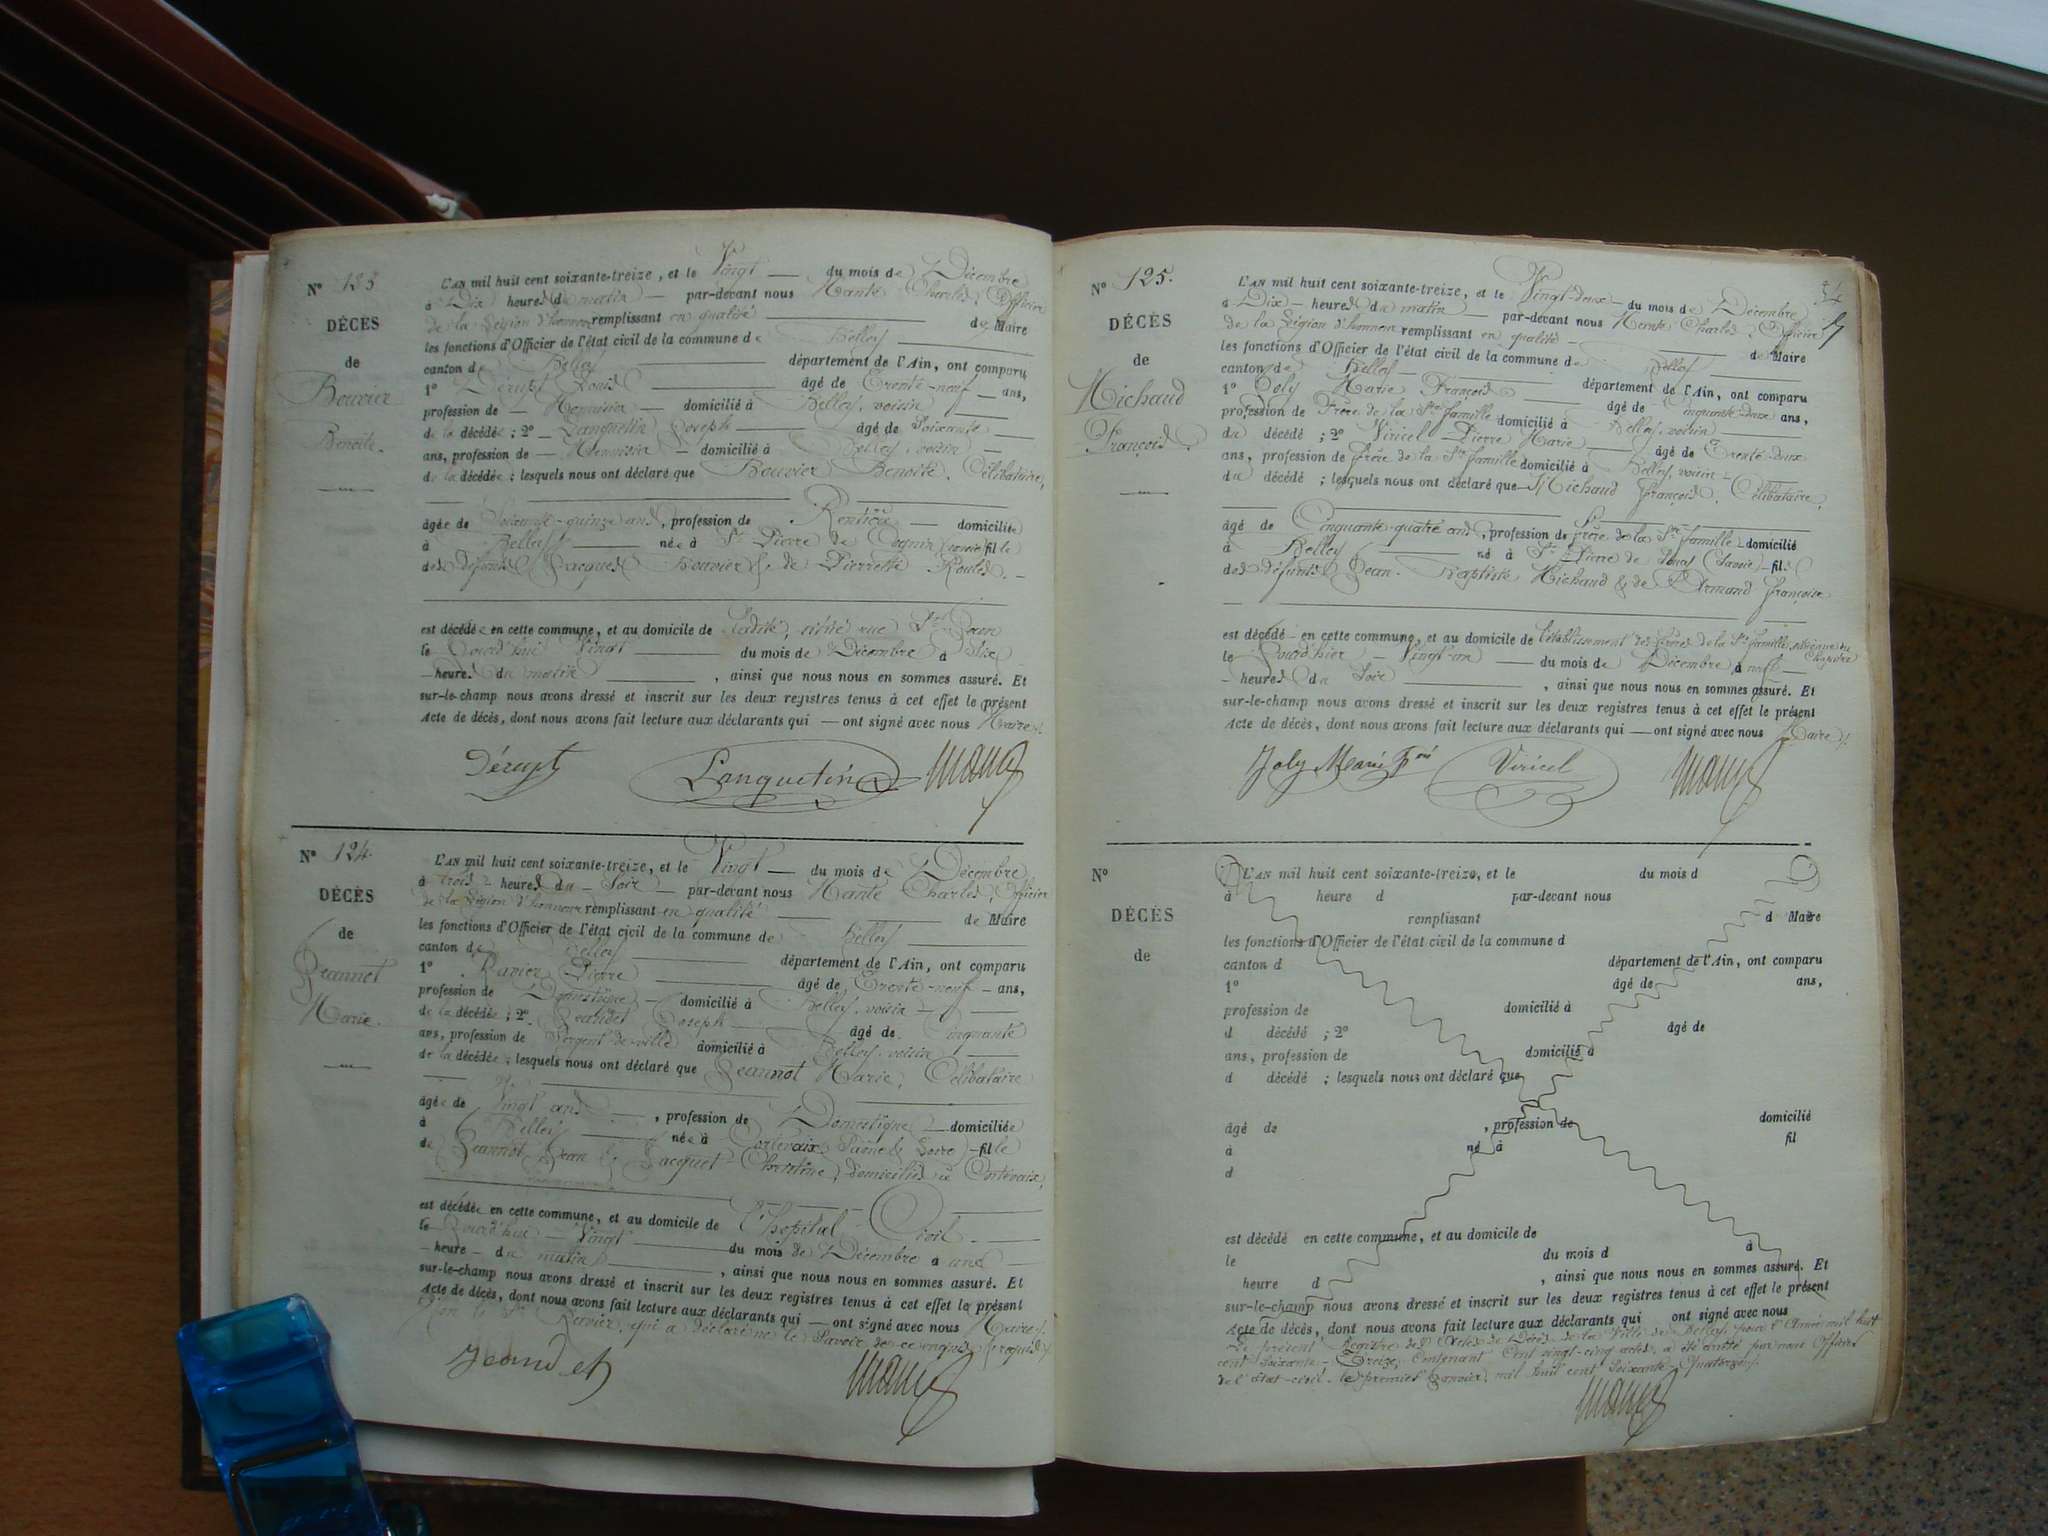 N° 123
DÉCÈS
de
Bouvier
Benoîte.
L'AN mil huit cent soixante-treize, et le Vingt du mois de Décembre
à Dix heures du matin par-devant nous Charles, Officier
de la Légion d'honneur remplissant en qualité de Maire
les fonctions d'Officier de l'état civil de la commune de Belley
canton de Belley département de l'Ain, ont comparu
1° Louis âgé de Trente-neuf ans,
profession de Menuisier domicilié à Belley, voisin
de la décédée ; 2° Lanquetin Joseph âgé de Soixante
ans, profession de Menuisier domicilié à Belley, voisin
de la décédée ; lesquels nous ont déclaré que Bouvier Benoîte, Célibataire,
âgée de Soixante-quinze ans, profession de Rentière domiciliée
à Belley née à St Pierre de fille
des défunts Jacques Bouvier & de Pierrette
est décédée en cette commune, et au domicile de rue St Jean
le Jourd'hui Vingt du mois de Décembre à Six
heures du matin, ainsi que nous nous en sommes assuré. Et
sur-le-champ nous avons dressé et inscrit sur les deux registres tenus à cet effet le présent
Acte de décès, dont nous avons fait lecture aux déclarants qui ont signé avec nous Maire.
Lanquetin
N° 124.
DÉCÈS
de
Jeannot
Marie.
L'AN mil huit cent soixante-treize, et le Vingt du mois de Décembre
à trois heures du Soir par-devant nous Charles, Officier
de la Légion d'honneur remplissant en qualité de Maire
les fonctions d'Officier de l'état civil de la commune de Belley
canton de Belley département de l'Ain, ont comparu
1° Ravier Pierre âgé de Trente-neuf ans,
profession de Domestique domicilié à Belley, voisin
de la décédée ; 2° Jeandet Joseph âgé de Cinquante
ans, profession de Sergent de ville domicilié à Belley, voisin
de la décédée ; lesquels nous ont déclaré que Jeannot Marie, Célibataire
âgée de Vingt ans, profession de Domestique domiciliée
à Belley née à Cortevaix (Saône & Loire) fille
de Jeannot Jean & Jacquet domiciliés à Cortevaix,
est décédée en cette commune, et au domicile de l'hôpital Civil
le Jourd'hui Vingt du mois de Décembre à une
heure du matin, ainsi que nous nous en sommes assuré. Et
sur-le-champ nous avons dressé et inscrit sur les deux registres tenus à cet effet le présent
Acte de décès, dont nous avons fait lecture aux déclarants qui ont signé avec nous Maire,
non le Sr Ravier, qui a déclaré ne le savoir de ce enquis & requis
Jeandet
N° 125.
DÉCÈS
de
Michaud
François.
L'AN mil huit cent soixante-treize, et le Vingt-deux du mois de Décembre
à Dix heures du matin par-devant nous Charles, Officier
de la Légion d'honneur remplissant en qualité de Maire
les fonctions d'Officier de l'état civil de la commune de Belley
canton de Belley département de l'Ain, ont comparu
1° Joly Marie François âgé de Cinquante-deux ans,
profession de Frère de la Ste famille domicilié à Belley, voisin
du décédé ; 2° Viricel Pierre Marie âgé de Trente-deux
ans, profession de frère de la Ste famille domicilié à Belley, voisin
du décédé ; lesquels nous ont déclaré que Michaud François, Célibataire,
âgé de Cinquante-quatre ans, profession de frère de la Ste famille domicilié
à Belley né à St Pierre de (Savoie) fils
des défunts Jean-Baptiste Michaud & de Armand Françoise
est décédé en cette commune, et au domicile de l'établissement des frères de la Ste famille,
le Jourd'hier Vingt-un du mois de Décembre à
heures du Soir, ainsi que nous nous en sommes assuré. Et
sur-le-champ nous avons dressé et inscrit sur les deux registres tenus à cet effet le présent
Acte de décès, dont nous avons fait lecture aux déclarants qui ont signé avec nous Maire.
Joly Marie Fçois Viricel
N°
DÉCÈS
de
L'AN mil huit cent soixante-treize, et le du mois d
à heure d par-devant nous
remplissant d Maire
les fonctions d'Officier de l'état civil de la commune d
canton d département de l'Ain, ont comparu
1° âgé de ans,
profession de domicilié à
d décédé ; 2° âgé de
ans, profession de domicilié à
d décédé ; lesquels nous ont déclaré que
âgé de , profession de domicilié
à né à fil
d
est décédé en cette commune, et au domicile de
le du mois d à
heure d , ainsi que nous nous en sommes assuré. Et
sur-le-champ nous avons dressé et inscrit sur les deux registres tenus à cet effet le présent
Acte de décès, dont nous avons fait lecture aux déclarants qui ont signé avec nous
Le présent Registre des Actes de Décès de la Ville de Belley pour l'Année mil huit
cent Soixante-Treize, Contenant Cent vingt-cinq actes, a été arrêté par nous Officier
de l'état-civil le premier Janvier mil huit cent Soixante-Quatorze.